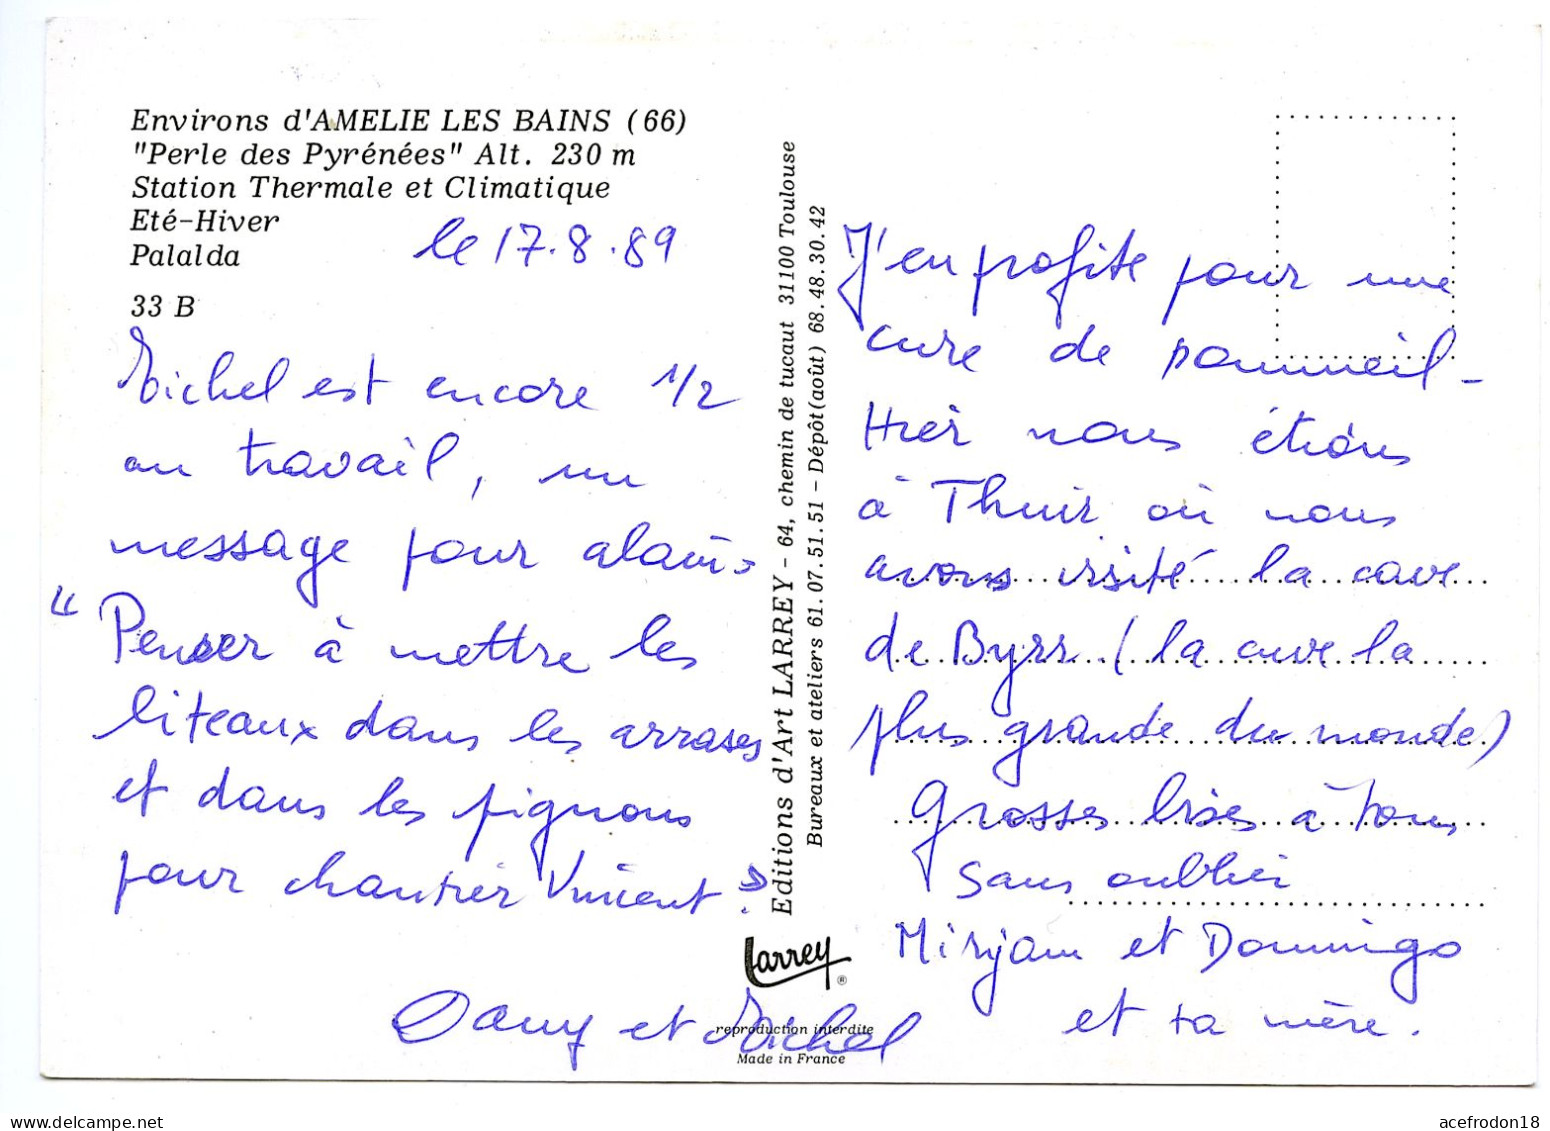 Environs d'AMELIE LES BAINS (66)
"Perle des Pyrénées" Alt. 230 m
Station Thermale et Climatique
Eté-Hiver
Palalda
33 B
le 17.8.89
Michel est encore 1/2
au travail, un
message pour alain :
" Penser à mettre les
liteaux dans les arrases
et dans les pignons
pour chantier Vincent ".
Dany et Michel
Editions d'Art LARREY - 64, chemin de tucaut 31100 Toulouse
Bureaux et ateliers 61.07.51.51 - Dépôt(août) 68.48.30.42
Larrey ®
reproduction interdite
Made in France
J'en profite pour une
cure de sommeil -
Hier nous étions
à Thuir où nous
avons visité la cave
de Byrr (la cuve la
plus grande du monde)
Grosses bises à tous
sans oublier
Mirjam et Domingo
et ta mère.
acefrodon18
www.delcampe.net